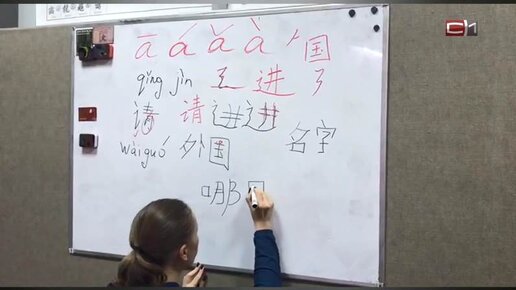 ā á ǎ à 国
qǐng jìn 进
请 请 进 进
wàiguó 外国 名字
哪
СИ1